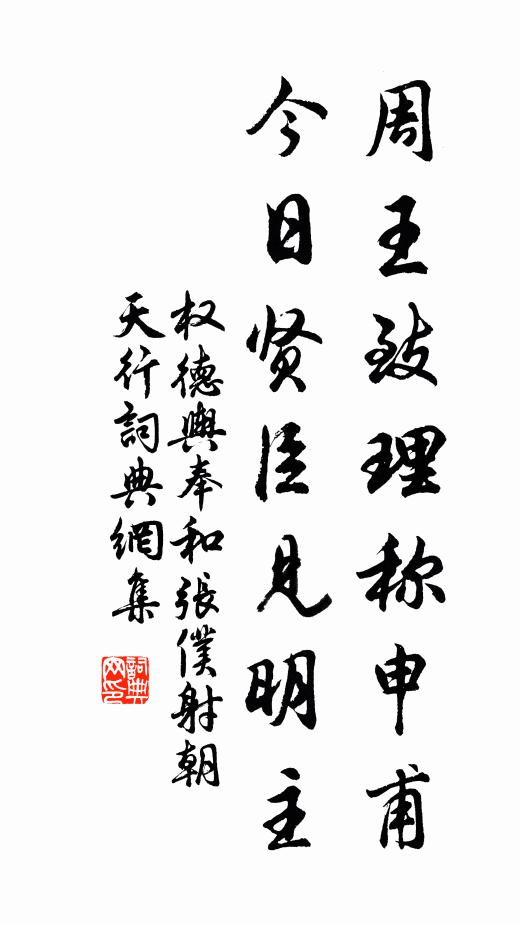 周王致理称申甫
今日贤臣见明主
权德舆奉和張僕射朝
天行詞典網集
詞典网印